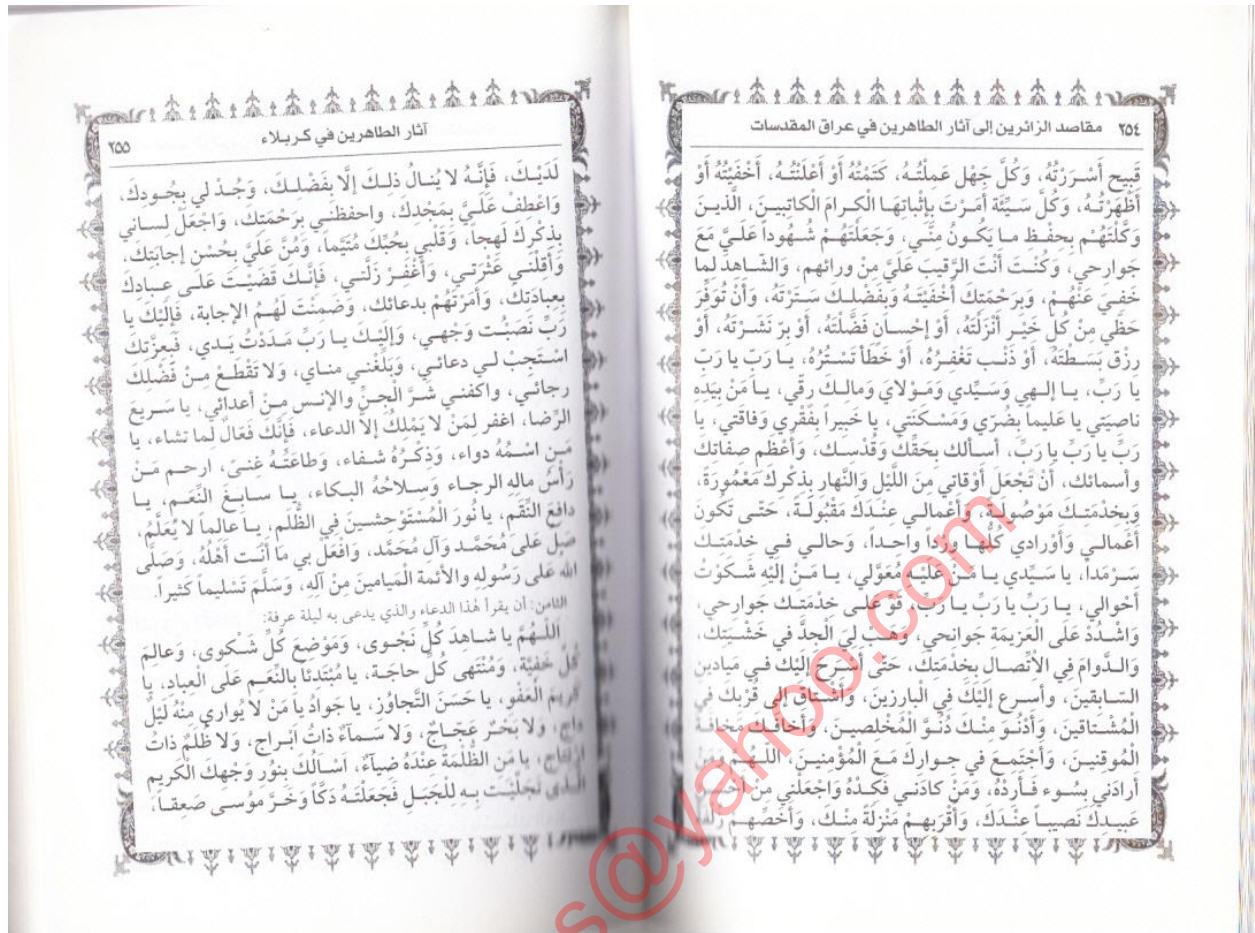 ٢٥٤ مقاصد الزائرين إلى آثار الطاهرين في عراق المقدسات
قَبِيح أَسْـرَرْتُهُ، وَكُلَّ جَهْل عَمِلْتُـهُ، كَتَمْتُهُ أَوْ أَعْلَنْتُـهُ، أَخْفَيْتُهُ أَوْ
أَظْهَرْتُـهُ، وَكُلَّ سَـيِّئَة أَمَرْتَ بِإثْباتِهَـا الْكـرامَ الْكاتِبيـنَ، الَّذيـنَ
وَكَّلْتَهُـمْ بِحِفْـظِ مـا يَكُـونُ مِنَّـي، وَجَعَلْتَهُـمْ شُـهُوداً عَلَـيَّ مَعَ
جَوارِحي، وَكُنْـتَ أَنْتَ الرَّقيبَ عَلَيَّ مِنْ ورائهم، وَالشّـاهدَ لِما
خَفـيَ عَنْهُـمْ، وَبِرَحْمَتِكَ أَخْفَيْتَـهُ وَبِفَضْلِـكَ سَـتَرْتَهُ، وَأنْ تُوَفِّرَ
حَظِّي مِنْ كُلِّ خَيْـر أَنْزَلْتَه، أَوْ إحْسـان فَضَّلْتَه، أَوْ بِرّ نَشَـرْتَهُ، أَوْ
رِزْق بَسَـطْتَهُ، أَوْ ذَنْـب تَغْفِـرُهُ، أَوْ خَطَأ تَسْـتُرُهُ، يـا رَبّ يا رَبّ
يا رَبّ، يـا إلـهي وَسَـيِّدي وَمَـوْلايَ وَمالِـكَ رِقّي، يـا مَنْ بيَدِهِ
ناصِيَتي يا عَليما بِضُرّي وَمَسْـكَنَتي، يا خَبيراً بِفَقْرِي وَفاقَتي، يا
رَبِّ يا رَبِّ يا رَبِّ، أسـألك بِحَقِّكَ وَقُدْسِـك، وَأَعْظَمِ صِفاتكَ
وأسمائك، أَنْ تَجْعَلَ أَوْقاتي مِنَ اللَّيْلِ وَالنَّهارِ بِذِكْرِكَ مَعْمُورَةً،
وَبِخِدْمَتِـكَ مَوْصُولَـةً، وَأَعْمالـي عِنْـدَكَ مَقْبُولَـةً، حَتّـى تَكُونَ
أَعْمالـي وَأَوْرادي كُلُّهـا وِرْداً واحـداً، وَحالي في خِدْمَتِـكَ
سَـرْمَداً، يا سَـيِّدي يـا مَـنْ عَلَيْـهِ مُعَوَّلي، يـا مَـنْ إِلَيْهِ شَـكَوْتُ
أَحْوالي، يـا رَبِّ يا رَبِّ يـا رَبِّ، قَوِّ عَلـى خِدْمَتِـكَ جَوارِحي،
وَاشْـدُدْ عَلَى الْعَزيمَة جَوانِحي، وَهَـبْ لِيَ الْجِدَّ في خَشْـيَتِكَ،
وَالـدَّوامَ فِي الاتِّصـال بِخِدْمَتِكَ، حَتّى أَسْـرَحَ إلَيْكَ فـي مَيادينِ
السّـابِقينَ، وأُسـرع إِلَيْكَ فِي الْبارِزينَ، وَأَشْـتاقَ إلى قُرْبِكَ في
الْمُشْـتاقينَ، وَأَدْنُـوَ مِنْـكَ دُنُـوَّ الْمُخْلصيـنَ، وَأَخافَـكَ مَخافَةَ
الْمُوقِنيـنَ، وَأَجْتَمِـعَ في جـوارِكَ مَـعَ الْمُؤْمِنيـنَ، اَللّـهُـمّ وَمَنْ
أَرادَني بِسُـوء فَـأَرِدْهُ، وَمَـنْ كادَنـي فَكِـدْهُ وَاجْعَلْني مِنْ أَحْسَنِ
عَبيـدِكَ نَصيبـاً عِنْـدَكَ، وَأَقْرَبِهِـمْ مَنْزِلَةً مِنْـكَ، وَأَخَصِّهِـمْ زُلْفَةً
آثار الطاهرين في كربلاء ٢٥٥
لَدَيْـكَ، فَإِنَّـهُ لا يُنـالُ ذلِـكَ إلّا بِفَضْلِـكَ، وَجُـدْ لي بِجُـودِكَ،
وَاعْطِفْ عَلَـيَّ بِمَجْدِكَ، واحفظنـي بِرَحْمَتِكَ، وَاجْعَلْ لِسـاني
بِذِكْرِكَ لَهِجاً، وَقَلْبي بِحُبِّكَ مُتَيَّماً، وَمُنَّ عَلَيَّ بِحُسْنِ إجابَتِكَ،
وَأَقْلَنـي عَثْرَتـي، وَأغْفِـرْ زَلَّتـي، فَإِنَّـكَ قَضَيْـتَ عَلـى عِبـادِكَ
بِعِبادَتِكَ، وَأَمَرْتَهُمْ بدعائك، وَضَمِنْتَ لَهُـمُ الإجابة، فَإِلَيْكَ يا
رَبِّ نَصَبْـتُ وَجْهـي، وَإِلَيْـكَ يـا رَبِّ مَـدَدْتُ يَـدي، فَبِعِزَّتِكَ
اسْـتَجِبْ لـي دعائـي، وَبَلِّغْنـي منـاي، وَلا تَقْطَـعْ مِـنْ فَضْلِكَ
رجائـي، واكفنـي شَـرَّ الْجِـنِّ والإنـس مـنْ أعدائي، يا سَـريعَ
الرّضـا، اغفر لِمَنْ لا يَمْلِكُ إلّا الدعاء، فَإِنَّكَ فَعّال لما تشاء، يا
مَـنِ اسْـمُهُ دواء، وَذِكْـرُهُ شـفاء، وَطاعَتُـهُ غِنـىً، ارحـم مَـنْ
رَأْسُ مالِهِ الرجـاء وَسِـلاحُهُ البـكاء، يـا سـابِـغَ النِّعَـمِ، يـا
دافِعَ النِّقَمِ، يا نُورَ الْمُسْتَوْحِشـينَ فِي الظُّلَمِ، يـا عالماً لا يُعَلَّمُ،
صَلِّ عَلى مُحَمَّـد وَآلِ مُحَمَّد، وَافْعَلْ بي ما أَنْتَ أَهْلُهُ، وَصَلَّى
الله عَلى رَسُولِهِ والأئمة الْمَيامينَ مِنْ آلِهِ، وَسَلَّمَ تَسْليماً كَثيراً.
الثامن: أن يقرأ هُذا الدعاء والذي يدعى به ليلة عرفة:
اَللّـهُمَّ يا شـاهِدَ كُلِّ نَجْـوى، وَمَوْضِعَ كُلِّ شَـكْوى، وَعالِمَ
كُلِّ خَفِيَّة، وَمُنْتَهى كُلِّ حاجَة، يا مُبْتَدئا بِالنِّعَـمِ عَلَى الْعِباد، يا
كَريمَ الْعَفْو، يا حَسَنَ التَّجاوُز، يا جَوادُ يا مَنْ لا يُواري مِنْهُ لَيْلٌ
داج، ولا بَحْـرٌ عَجّـاجٌ، ولا سَـماءٌ ذاتُ اَبْـراج، وَلا ظُلَمٌ ذاتُ
ارْتِتاج، يا مَنِ الظُّلْمَةُ عِنْدَهُ ضِياءٌ، اَسْـأَلُكَ بِنُور وَجْهِكَ الْكَريم
الَّـذي تَجَلَّيْـتَ بِـهِ لِلْجَبَـلِ فَجَعَلْتَـهُ دَكّاً وَخَـرَّ مُوسـى صَعِقـا،
s@yahoo.com